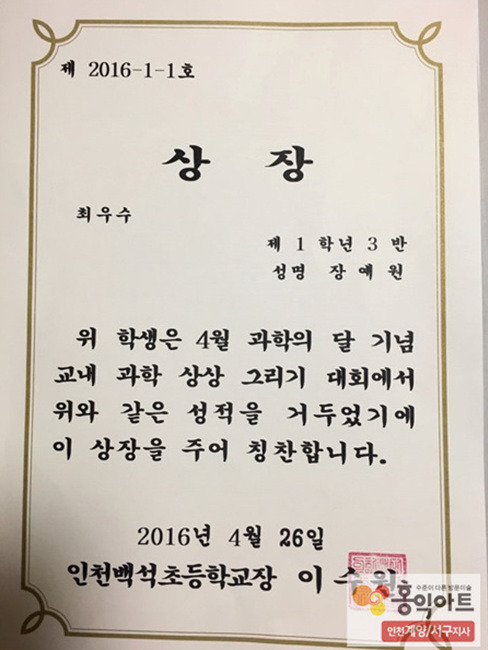 제 2016-1-1호
상 장
최우수
제 1 학년 3 반
성명 장예원
위 학생은 4월 과학의 달 기념
교내 과학 상상 그리기 대회에서
위와 같은 성적을 거두었기에
이 상장을 주어 칭찬합니다.
2016년 4월 26일
인천백석초등학교장 이수원
수준이 다른 방문미술
홍익아트
인천계양/서구지사